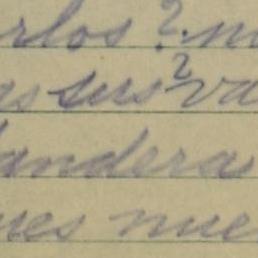 rlos?. m
as sus? va
andera
ues nue